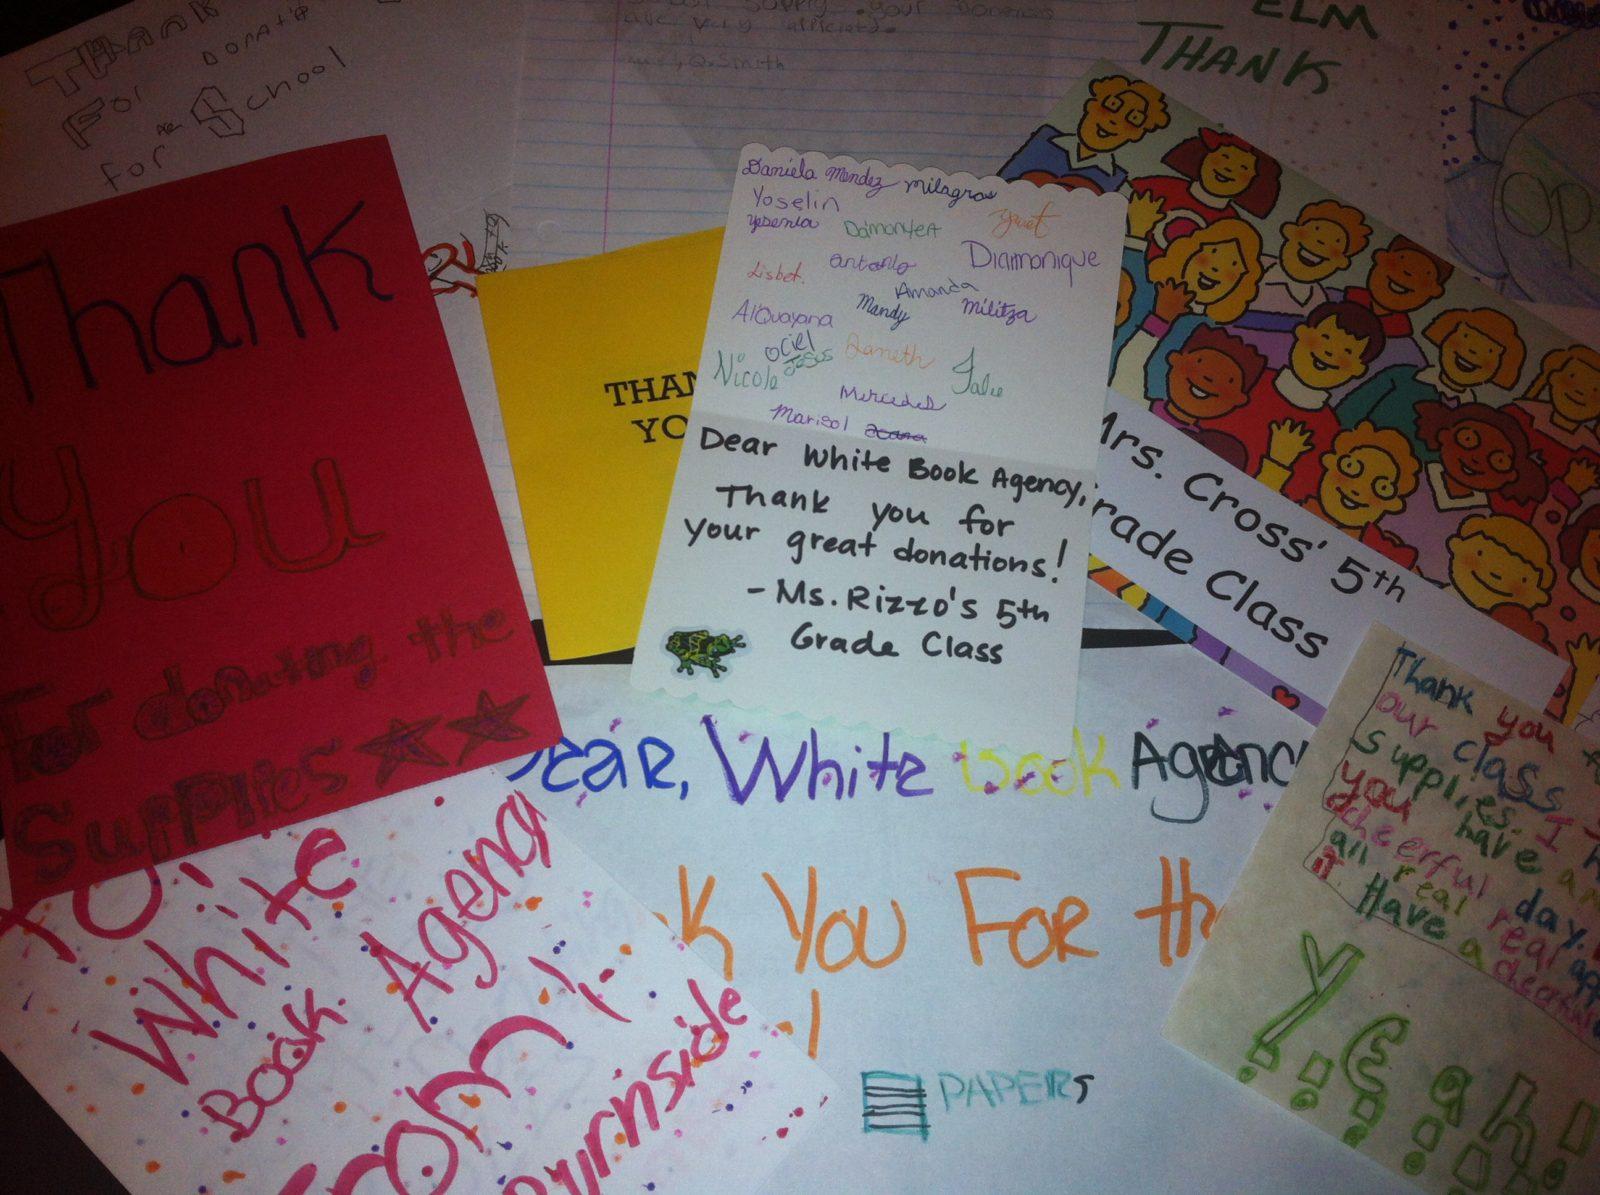 THANK
For DONATI
for are School
school supply. your
are very
Smith
ELM
THANK
Thank
you
For donating the
Supplies
THAN
YO
Daniela Mendez milagros
Yoselin
yesenia DamonteA yuet
Lisbet. antonio Diamonique
Amanda
AlQuayana Mandy Militza
Ociel
Nicole Jesus Janeth Julie
Mercedes
Marisol
Dear White Book Agency,
Thank you for
your great donations!
- Ms. Rizzo's 5th
Grade Class
Mrs. Cross' 5th
rade Class
op
Dear, White book Agenc
k You For th
!
PAPERS
TO:
White
Book Agency
From
Burnside
Thank you f
our class
supplies. I h
you have a n
cheerful day.
all real real app
it. Have a cheerful
Yeah!